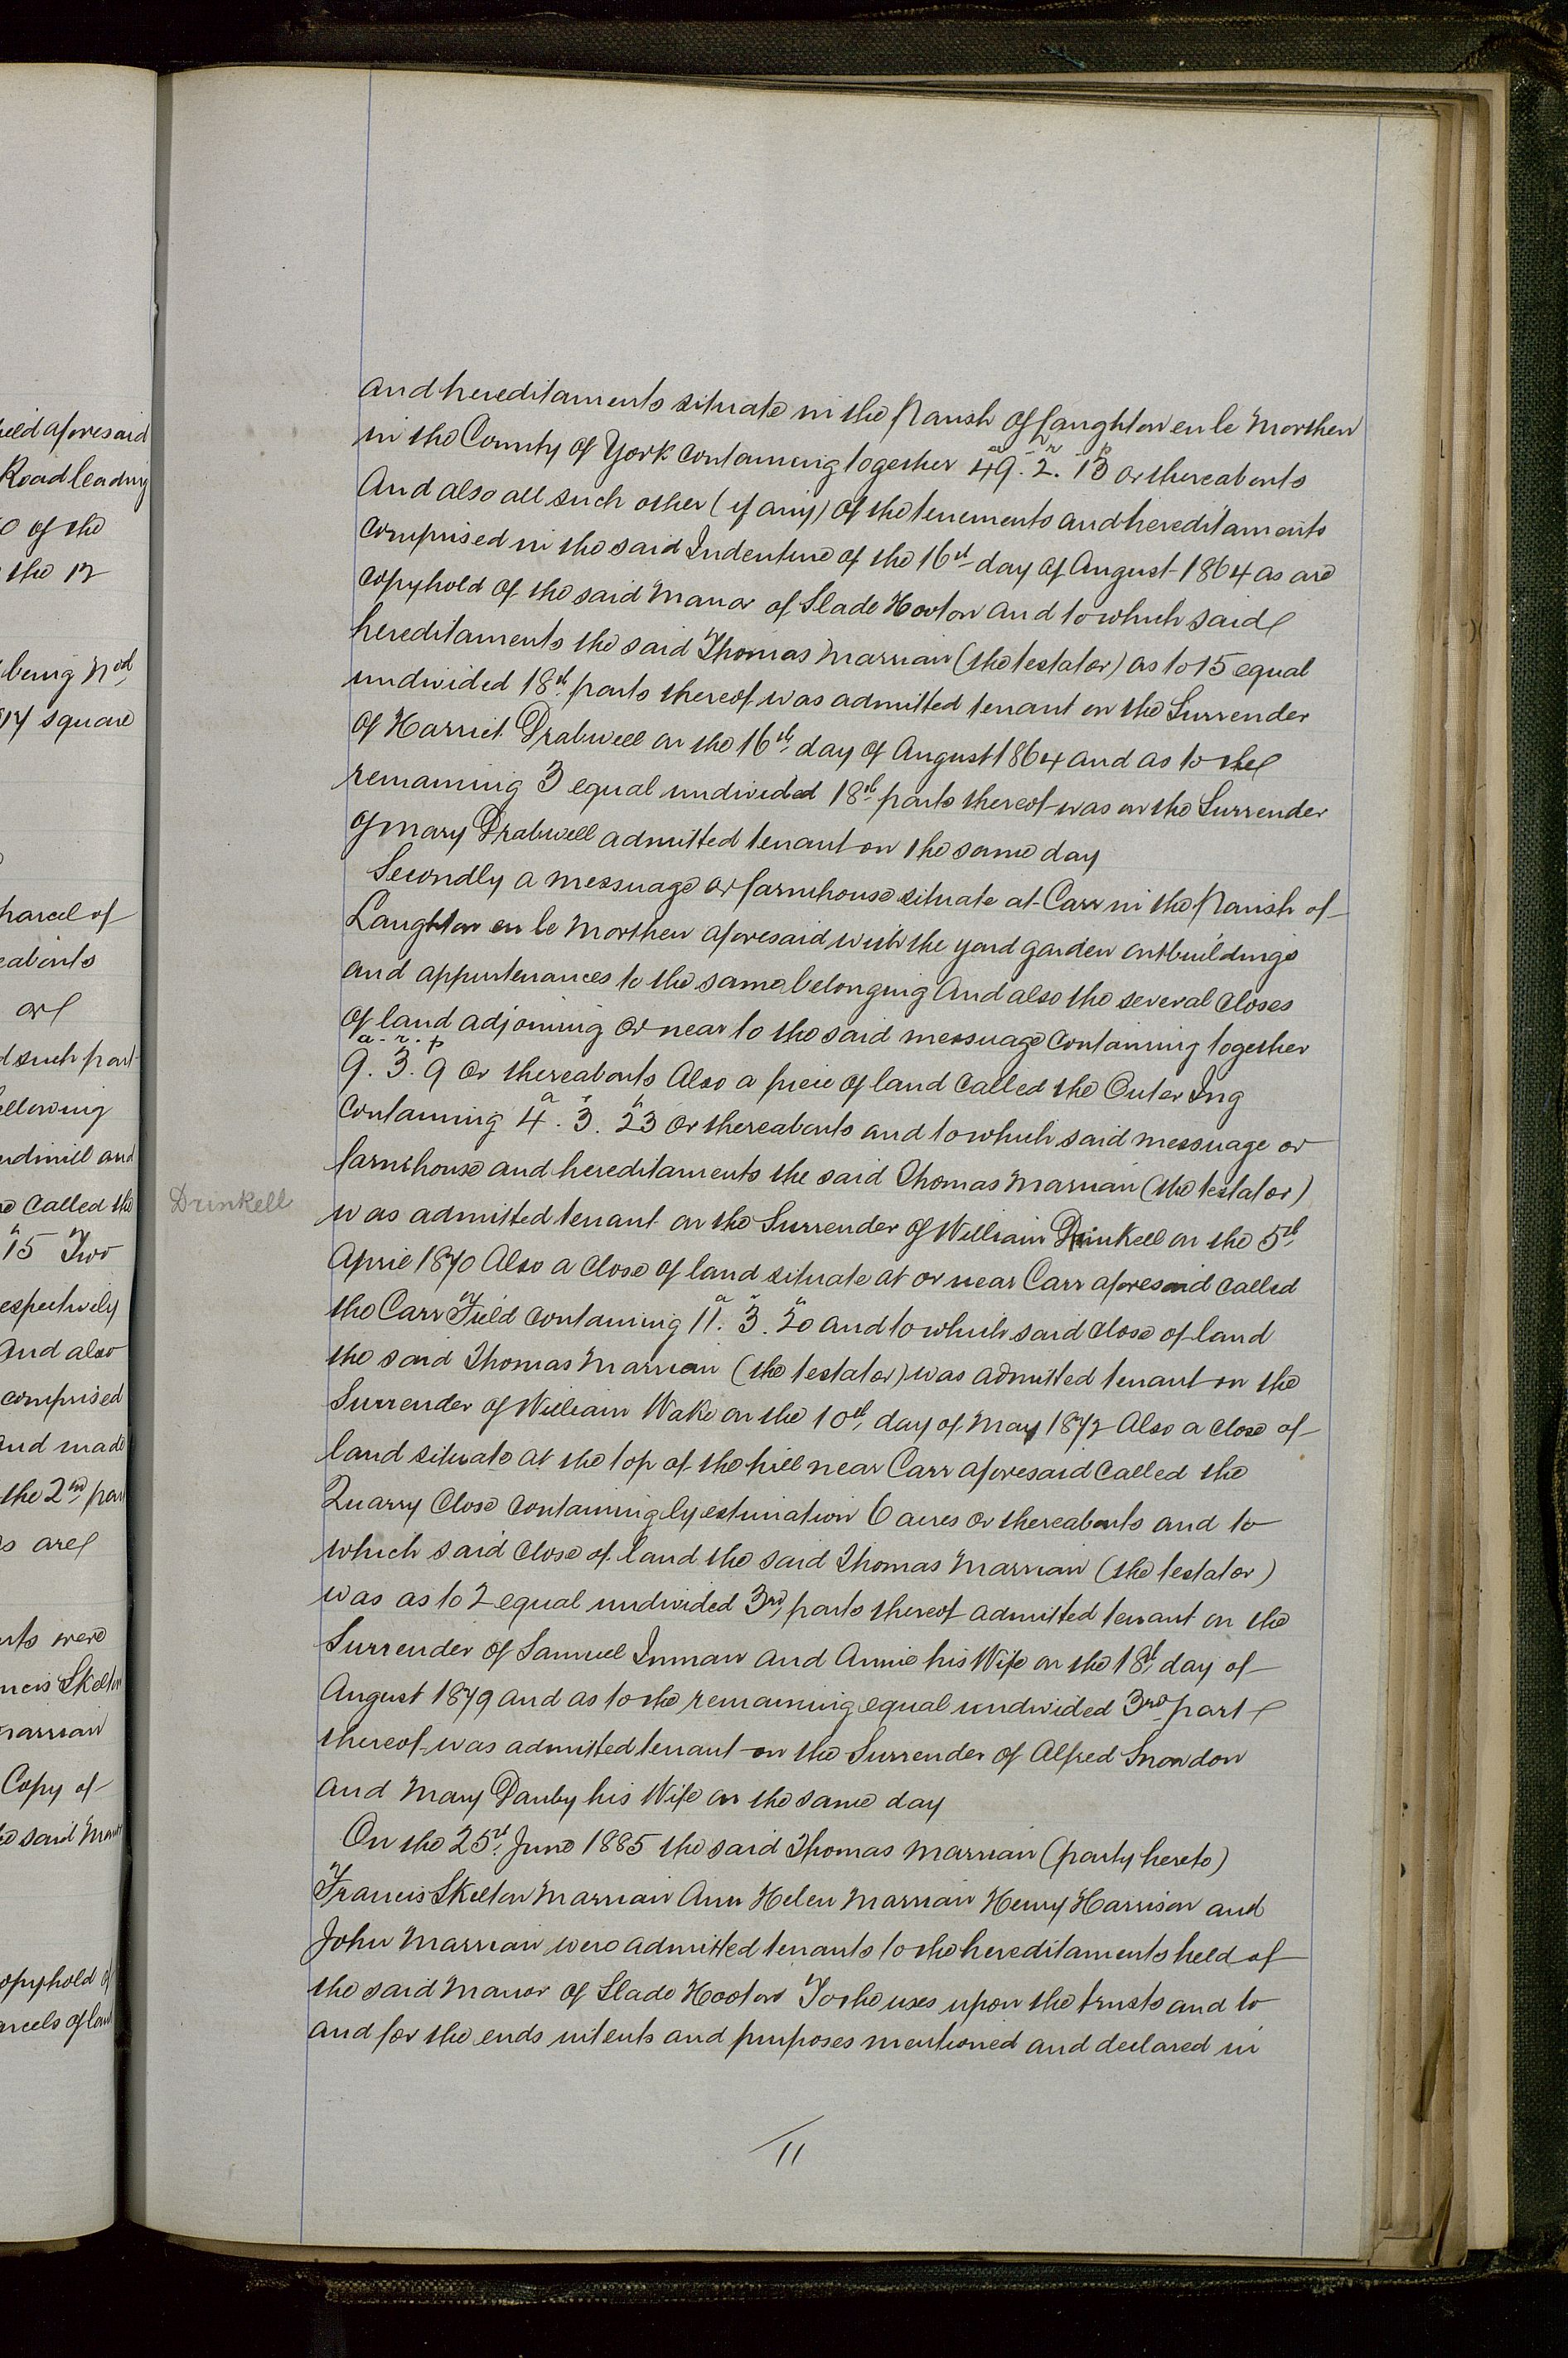 and hereditaments situate in the Parish of Laughton en le Morthen
in the County of York containing together 49a. 2r. 13p or thereabouts
And also all such other (if any) of the tenements and hereditaments
comprised in the said Indenture of the 16th day of August 1864 as are
copyhold of the said Manor of Slade Hooton and to which said
hereditaments the said Thomas Marrian (the testator) as to 15 equal
undivided 18th parts thereof was admitted tenant on the Surrender
of Harriet Drabwell on the 16th day of August 1864 and as to the
remaining 3 equal undivided 18th parts thereof was on the Surrender
of Mary Drabwell admitted tenant on the same day
Secondly a messuage or farmhouse situate at Carr in the Parish of
Laughton en le Morthen aforesaid with the yard garden outbuildings
and appurtenances to the same belonging And also the several closes
of land adjoining or near to the said messuage containing together
9a. 3r. 9p or thereabouts Also a piece of land called the Outer Ing
containing 4a. 3r. 23p or thereabouts and to which said messuage or
farmhouse and hereditaments the said Thomas Marrian (the testator)
Drinkell
was admitted tenant on the Surrender of William Drinkell on the 5th
April 1870 Also a close of land situate at or near Carr aforesaid called
the Carr Field containing 11a. 3r. 20p and to which said close of land
the said Thomas Marrian (the testator) was admitted tenant on the
Surrender of William Wake on the 10th day of May 1872 Also a close of
land situate at the top of the hill near Carr aforesaid called the
Quarry Close containing by estimation 6 acres or thereabouts and to
which said close of land the said Thomas Marrian (the testator)
was as to 2 equal undivided 3rd parts thereof admitted tenant on the
Surrender of Samuel Inman and Annie his Wife on the 18th day of
August 1879 and as to the remaining equal undivided 3rd part
thereof was admitted tenant on the Surrender of Alfred Snowdon
and Mary Danby his Wife on the same day
On the 25th June 1885 the said Thomas Marrian (party hereto)
Francis Skelton Marrian Ann Helen Marrian Henry Harrison and
John Marrian were admitted tenants to the hereditaments held of
the said Manor of Slade Hooton To the uses upon the trusts and to
and for the ends intents and purposes mentioned and declared in
11